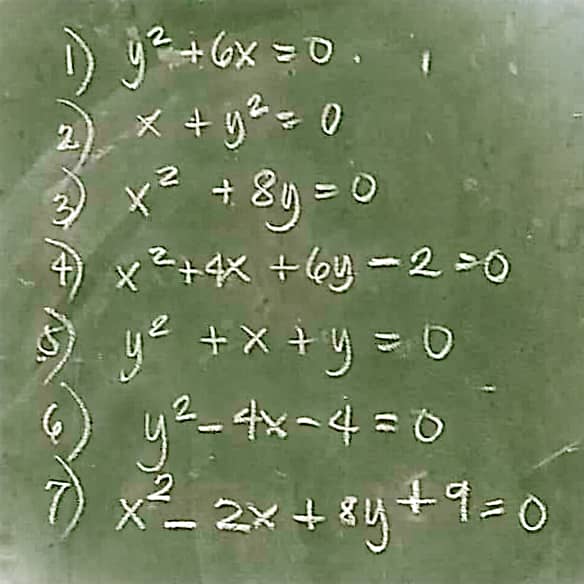 1) y² + 6x = 0.
2) x + y² = 0
3) x² + 8y = 0
4) x² + 4x + 6y - 2 = 0
5) y² + x + y = 0
6) y² - 4x - 4 = 0
7) x² - 2x + 8y + 9 = 0